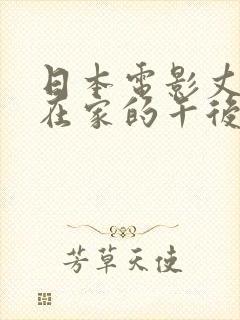 日本电影丈
在家的午後
芳草天使